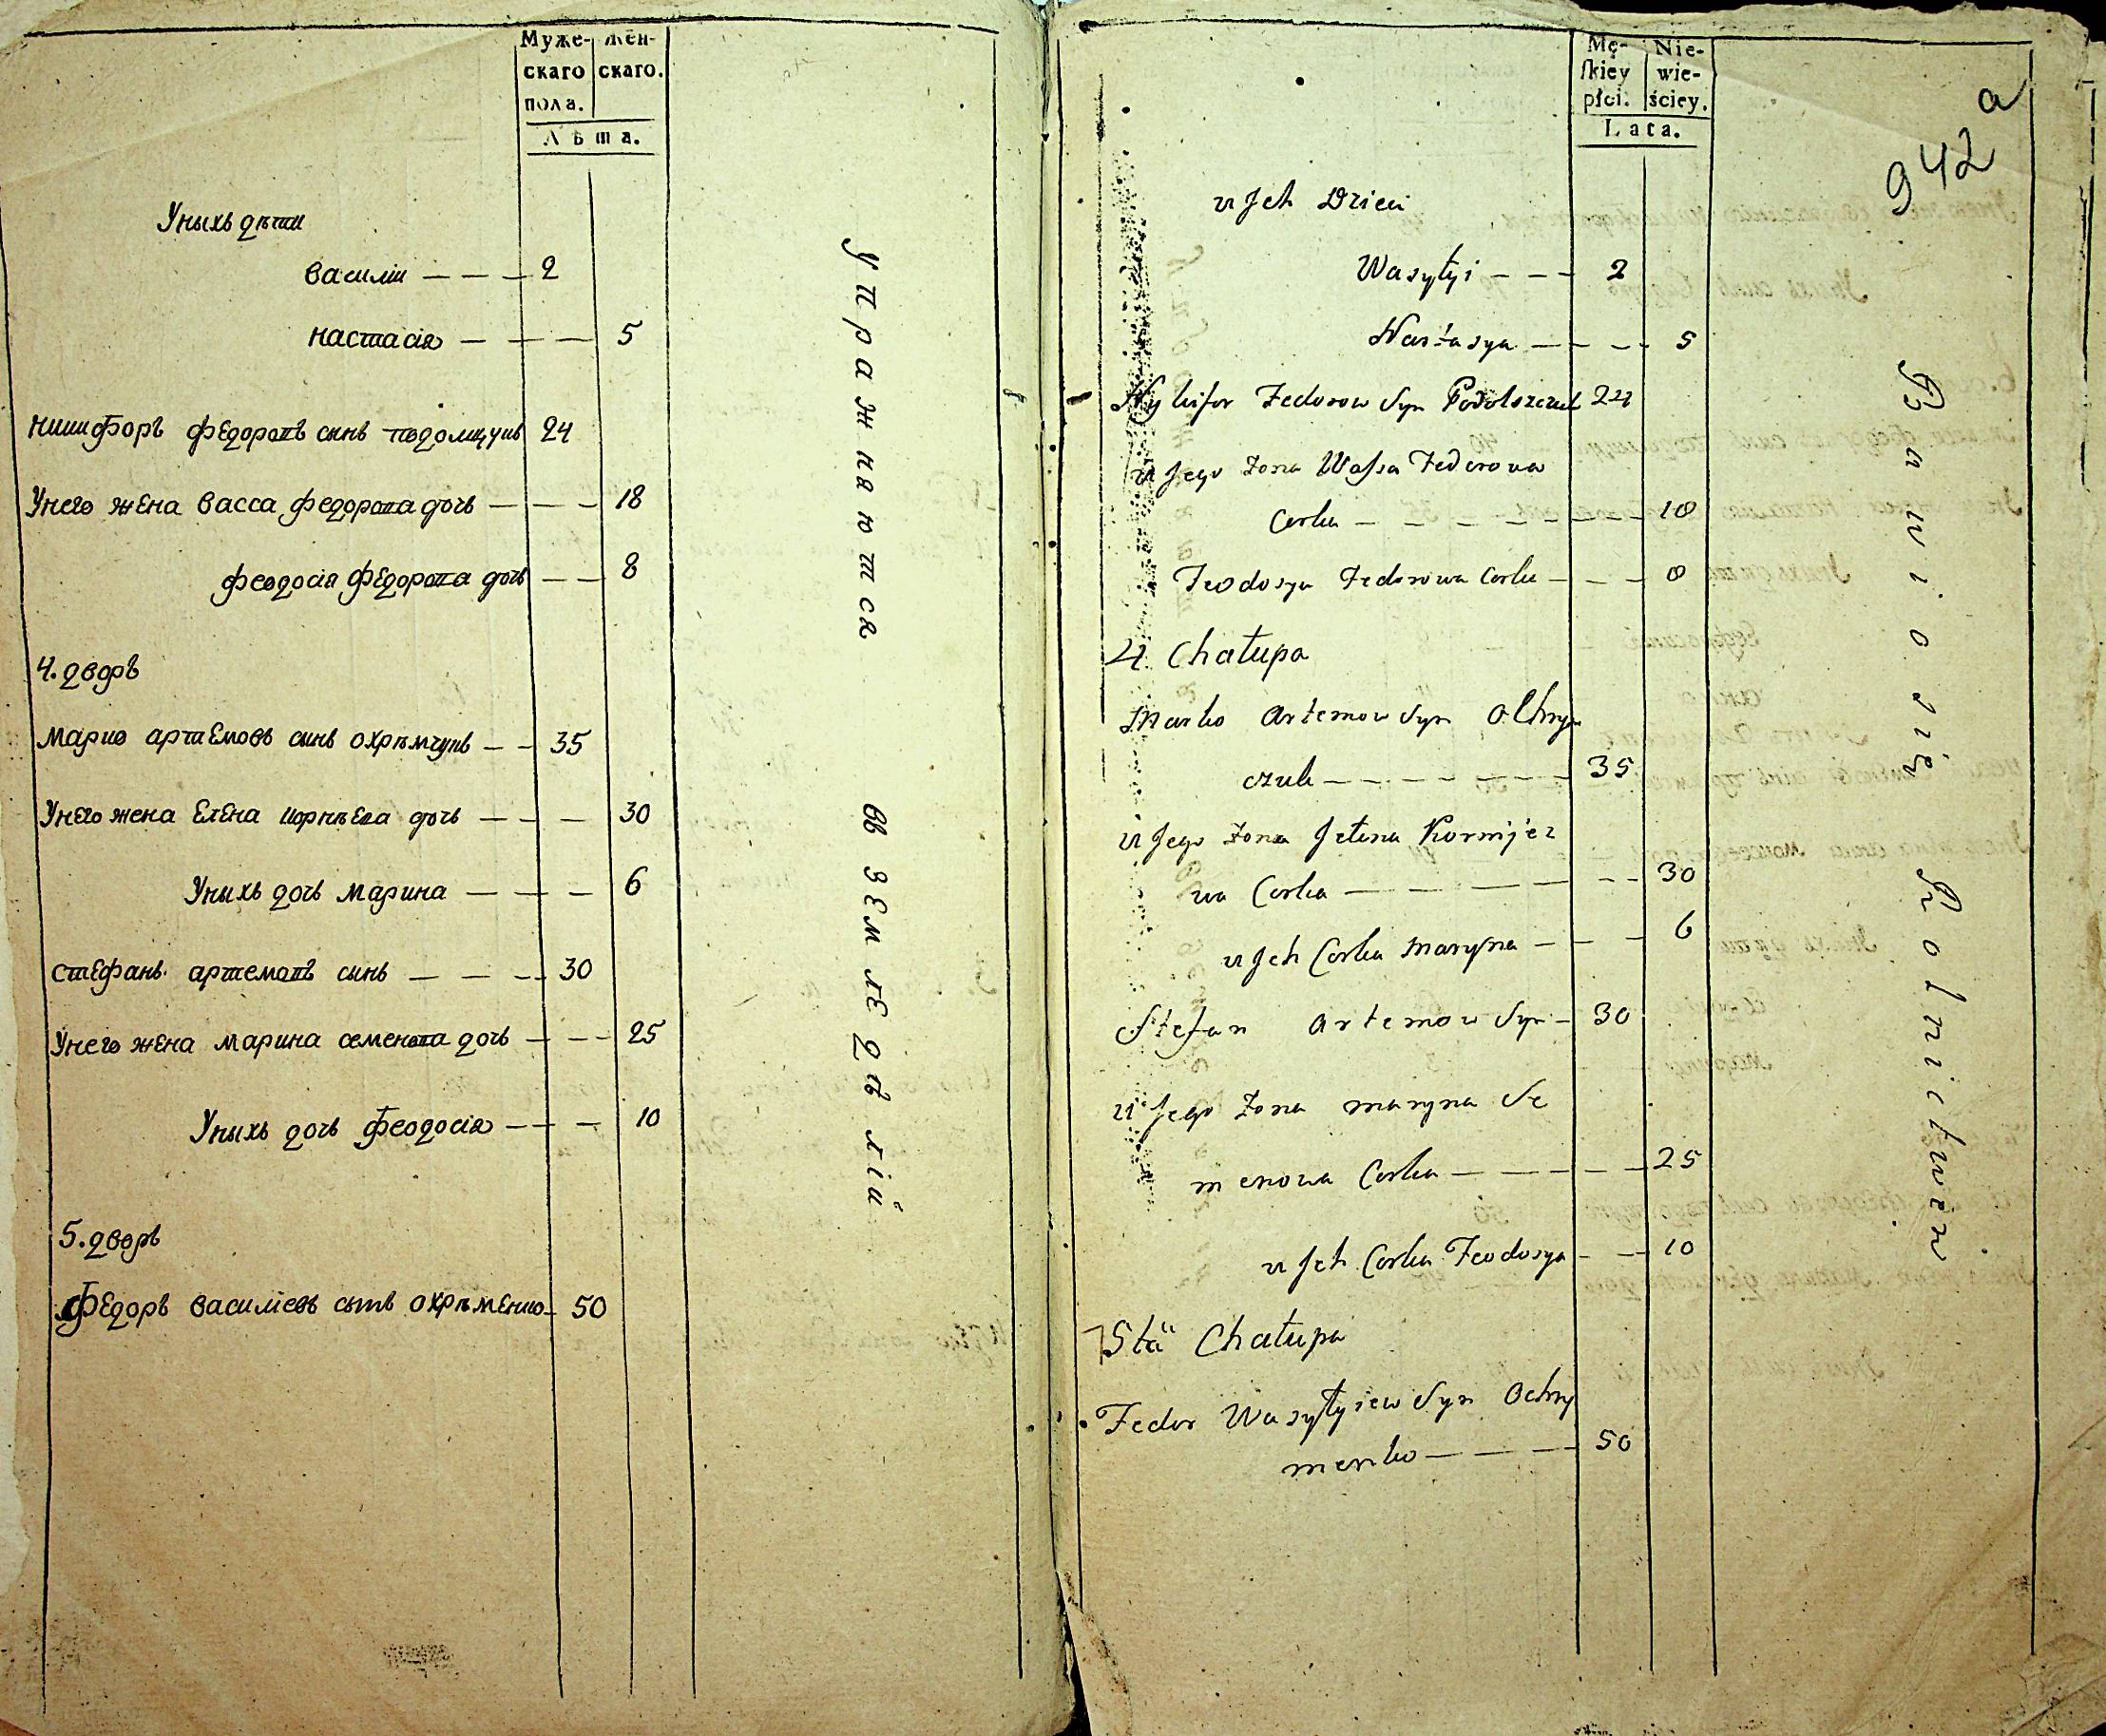 Муже- жен-
скаго скаго.
пола.
Лѣта.
Унихъ дѣти
василіи — — — 2
настасія — — — 5
никифоръ федоровъ синъ подолщукъ 24
Унего жена васса федорова дочь — — — 18
феодосія федорова дочь — — 8
4. дворъ
марко артемовъ синъ охрѣмчукъ — — 35
Унего жена елена корнѣева дочь — — — 30
Унихъ дочь марина — — — 6
стефанъ артемовъ синъ — — — 30
Унего жена марина семенова дочь — — — 25
Унихъ дочь феодосія — — — 10
5. дворъ
федоръ василіевъ сынъ охрѣменко — 50
Упражняются въ земледѣліи
Mę- Nie-
skiey wie-
płci. ściey.
Lata.
a
942
u Jch Dzieci
Wasyłyi — — — 2
Nastasya — — — — 5
Nykifor Fedorow Syn Podolszczuk 24
u Jego Zona Wassa Fedorowa
Corka — — — — — — — 18
Teodosya Fedorowa Corka — — — 8
4 Chałupa
Marko Artemow Syn Ochrym
czuk — — — — — — 35
u Jego Zona Jełena Kornije
wa Corka — — — — — — 30
u Jch Corka Maryna — — — 6
Stefan Artemow Syn — 30
u Jego Zona Maryna Se
menowa Corka — — — — — 25
u Jch Corka Teodosya — — 10
5ta Chałupa
Fedor Wasyłyiew Syn Ochry
menko — — — — 50
Bawio się Rolnictwem